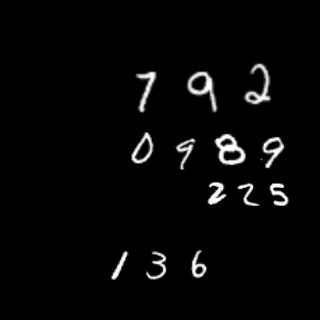 7 9 2
0 9 8 9
2 2 5
1 3 6